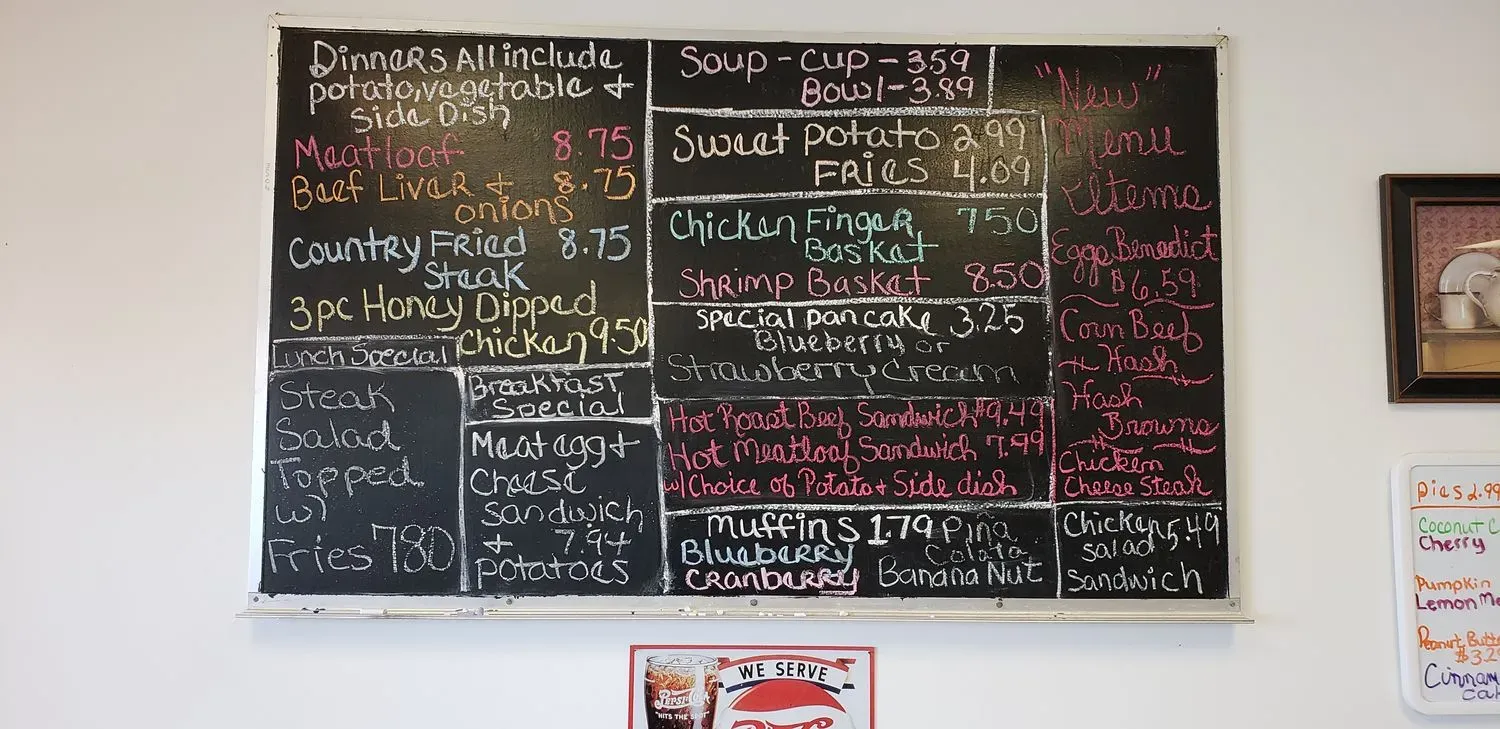 Dinners All include
potato, vegetable +
Side Dish
Meatloaf 8.75
Beef Liver + 8.75
onions
Country Fried 8.75
Steak
3pc Honey Dipped
Chicken 9.50
Lunch Special
Steak
Salad
Topped
w/
Fries 780
Breakfast
Special
Meat egg +
Cheese
sandwich
+ 7.94
potatoes
Soup - Cup - 3.59
Bowl - 3.89
Sweet Potato 2.99
Fries 4.09
Chicken Finger 750
Basket
Shrimp Basket 8.50
Special pancake 3.25
Blueberry or
Strawberry Cream
Hot Roast Beef Sandwich $9.49
Hot Meatloaf Sandwich 7.99
w/ Choice of Potato + Side dish
Muffins 1.79 Piña
Colata
Blueberry
Cranberry Banana Nut
"New"
Menu
Items
Eggs Benedict
$6.59
Corn Beef
+ Hash
Hash
Browns
Chicken
Cheese Steak
Chicken 5.49
Salad
Sandwich
Pies 2.99
Coconut C
Cherry
Pumpkin
Lemon Me
Peanut Butt
$3.29
Cinnam
WE SERVE
Pepsi-Cola
"HITS THE SPOT"